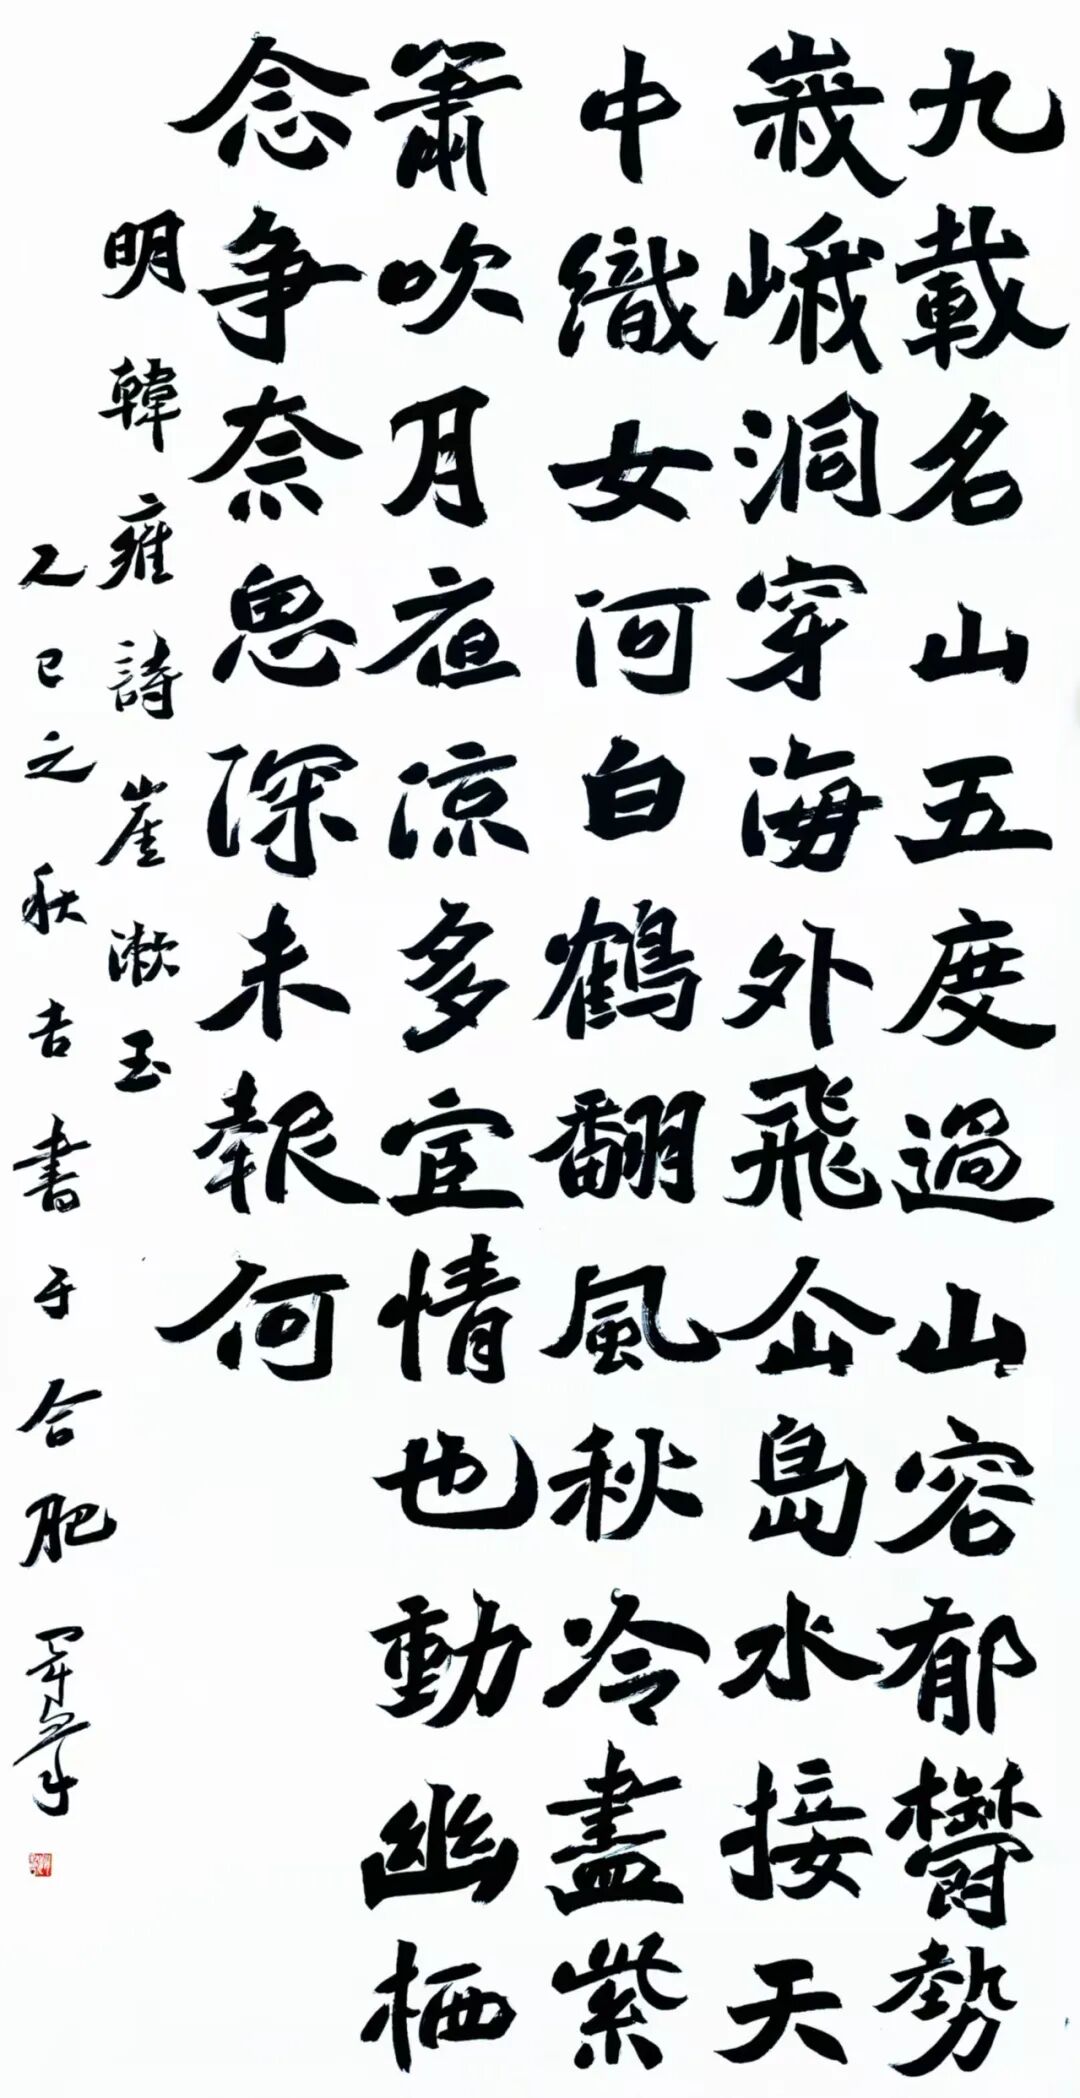 九載名山五度過山容郁欝勢
嵳峨洞穿海外飛仚島水接天
中織女河白鶴翻風秋冷盡紫
簫吹月夜涼多宦情也動幽栖
念争奈恩深未報何
明韓雍詩崖漱玉
乙巳之秋吉書于合肥